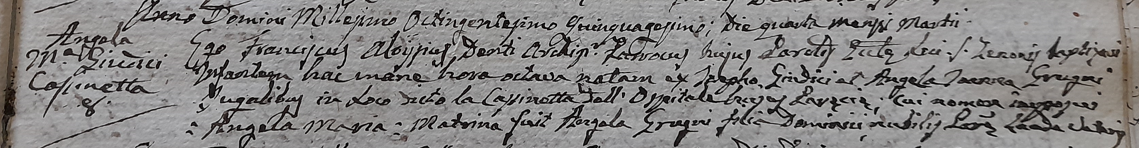 Anno Domini Millesimo Octingentesimo Quinquagesimo; Die quarta mensis Martii
Angela
Mª Giudici
Cassinetta
8.
Ego Franciscus Aloÿsius Denti Archips Parrocus hujus Parolis Eccle Loci S. Zenonis baptizavi
Infantem hac mane hora octava natam ex Josepho Giudici et Angela Grugni
Jugalibus in Loco dicto la Cassinetta dell' Ospitale hujus Parœcia, Cui nomen imposui
= Angela Maria = Matrina fuit Angela Grugni filia Dominici nubilis